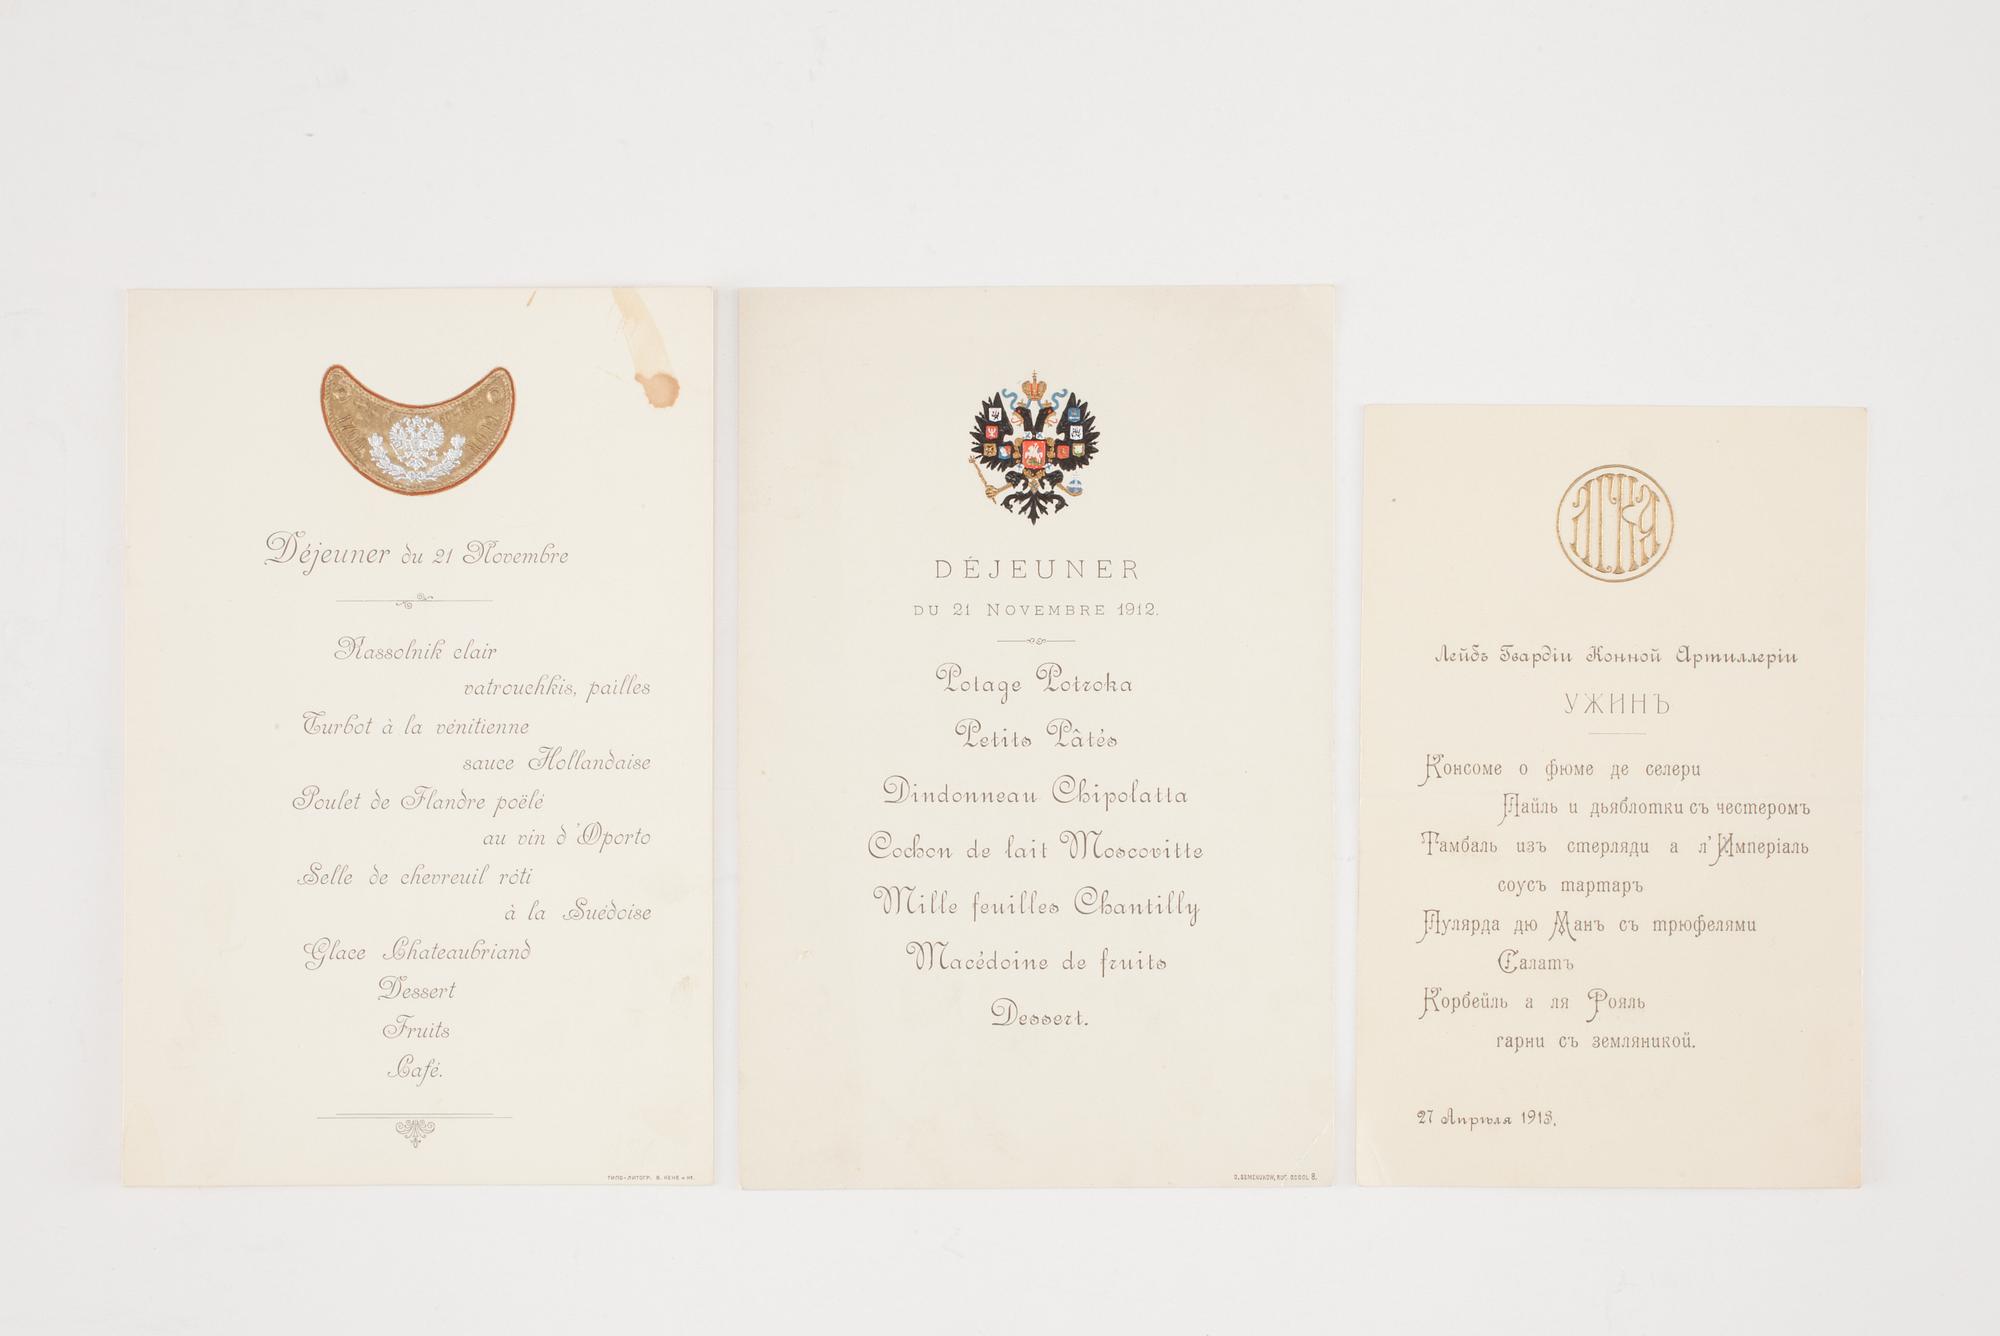 Déjeuner du 21 Novembre
Rassolnik clair
vatrouchkis, pailles
Turbot à la vénitienne
sauce Hollandaise
Poulet de Flandre poëlé
au vin d'Oporto
Selle de chevreuil rôti
à la Suédoise
Glace Chateaubriand
Dessert
Fruits
Café.
ТИПО-ЛИТОГР.
DÉJEUNER
DU 21 NOVEMBRE 1912.
Potage Potroka
Petits Pâtés
Dindonneau Chipolatta
Cochon de lait Moscovitte
Mille feuilles Chantilly
Macédoine de fruits
Dessert.
ЛГКА
Лейбъ Гвардіи Конной Артиллеріи
УЖИНЪ
Консоме о фюме де селери
Пайль и дьяблотки съ честеромъ
Тамбаль изъ стерляди а л'Имперіаль
соусъ тартаръ
Пулярда дю Манъ съ трюфелями
Салатъ
Корбейль а ля Рояль
гарни съ земляникой.
27 Апрѣля 1913.